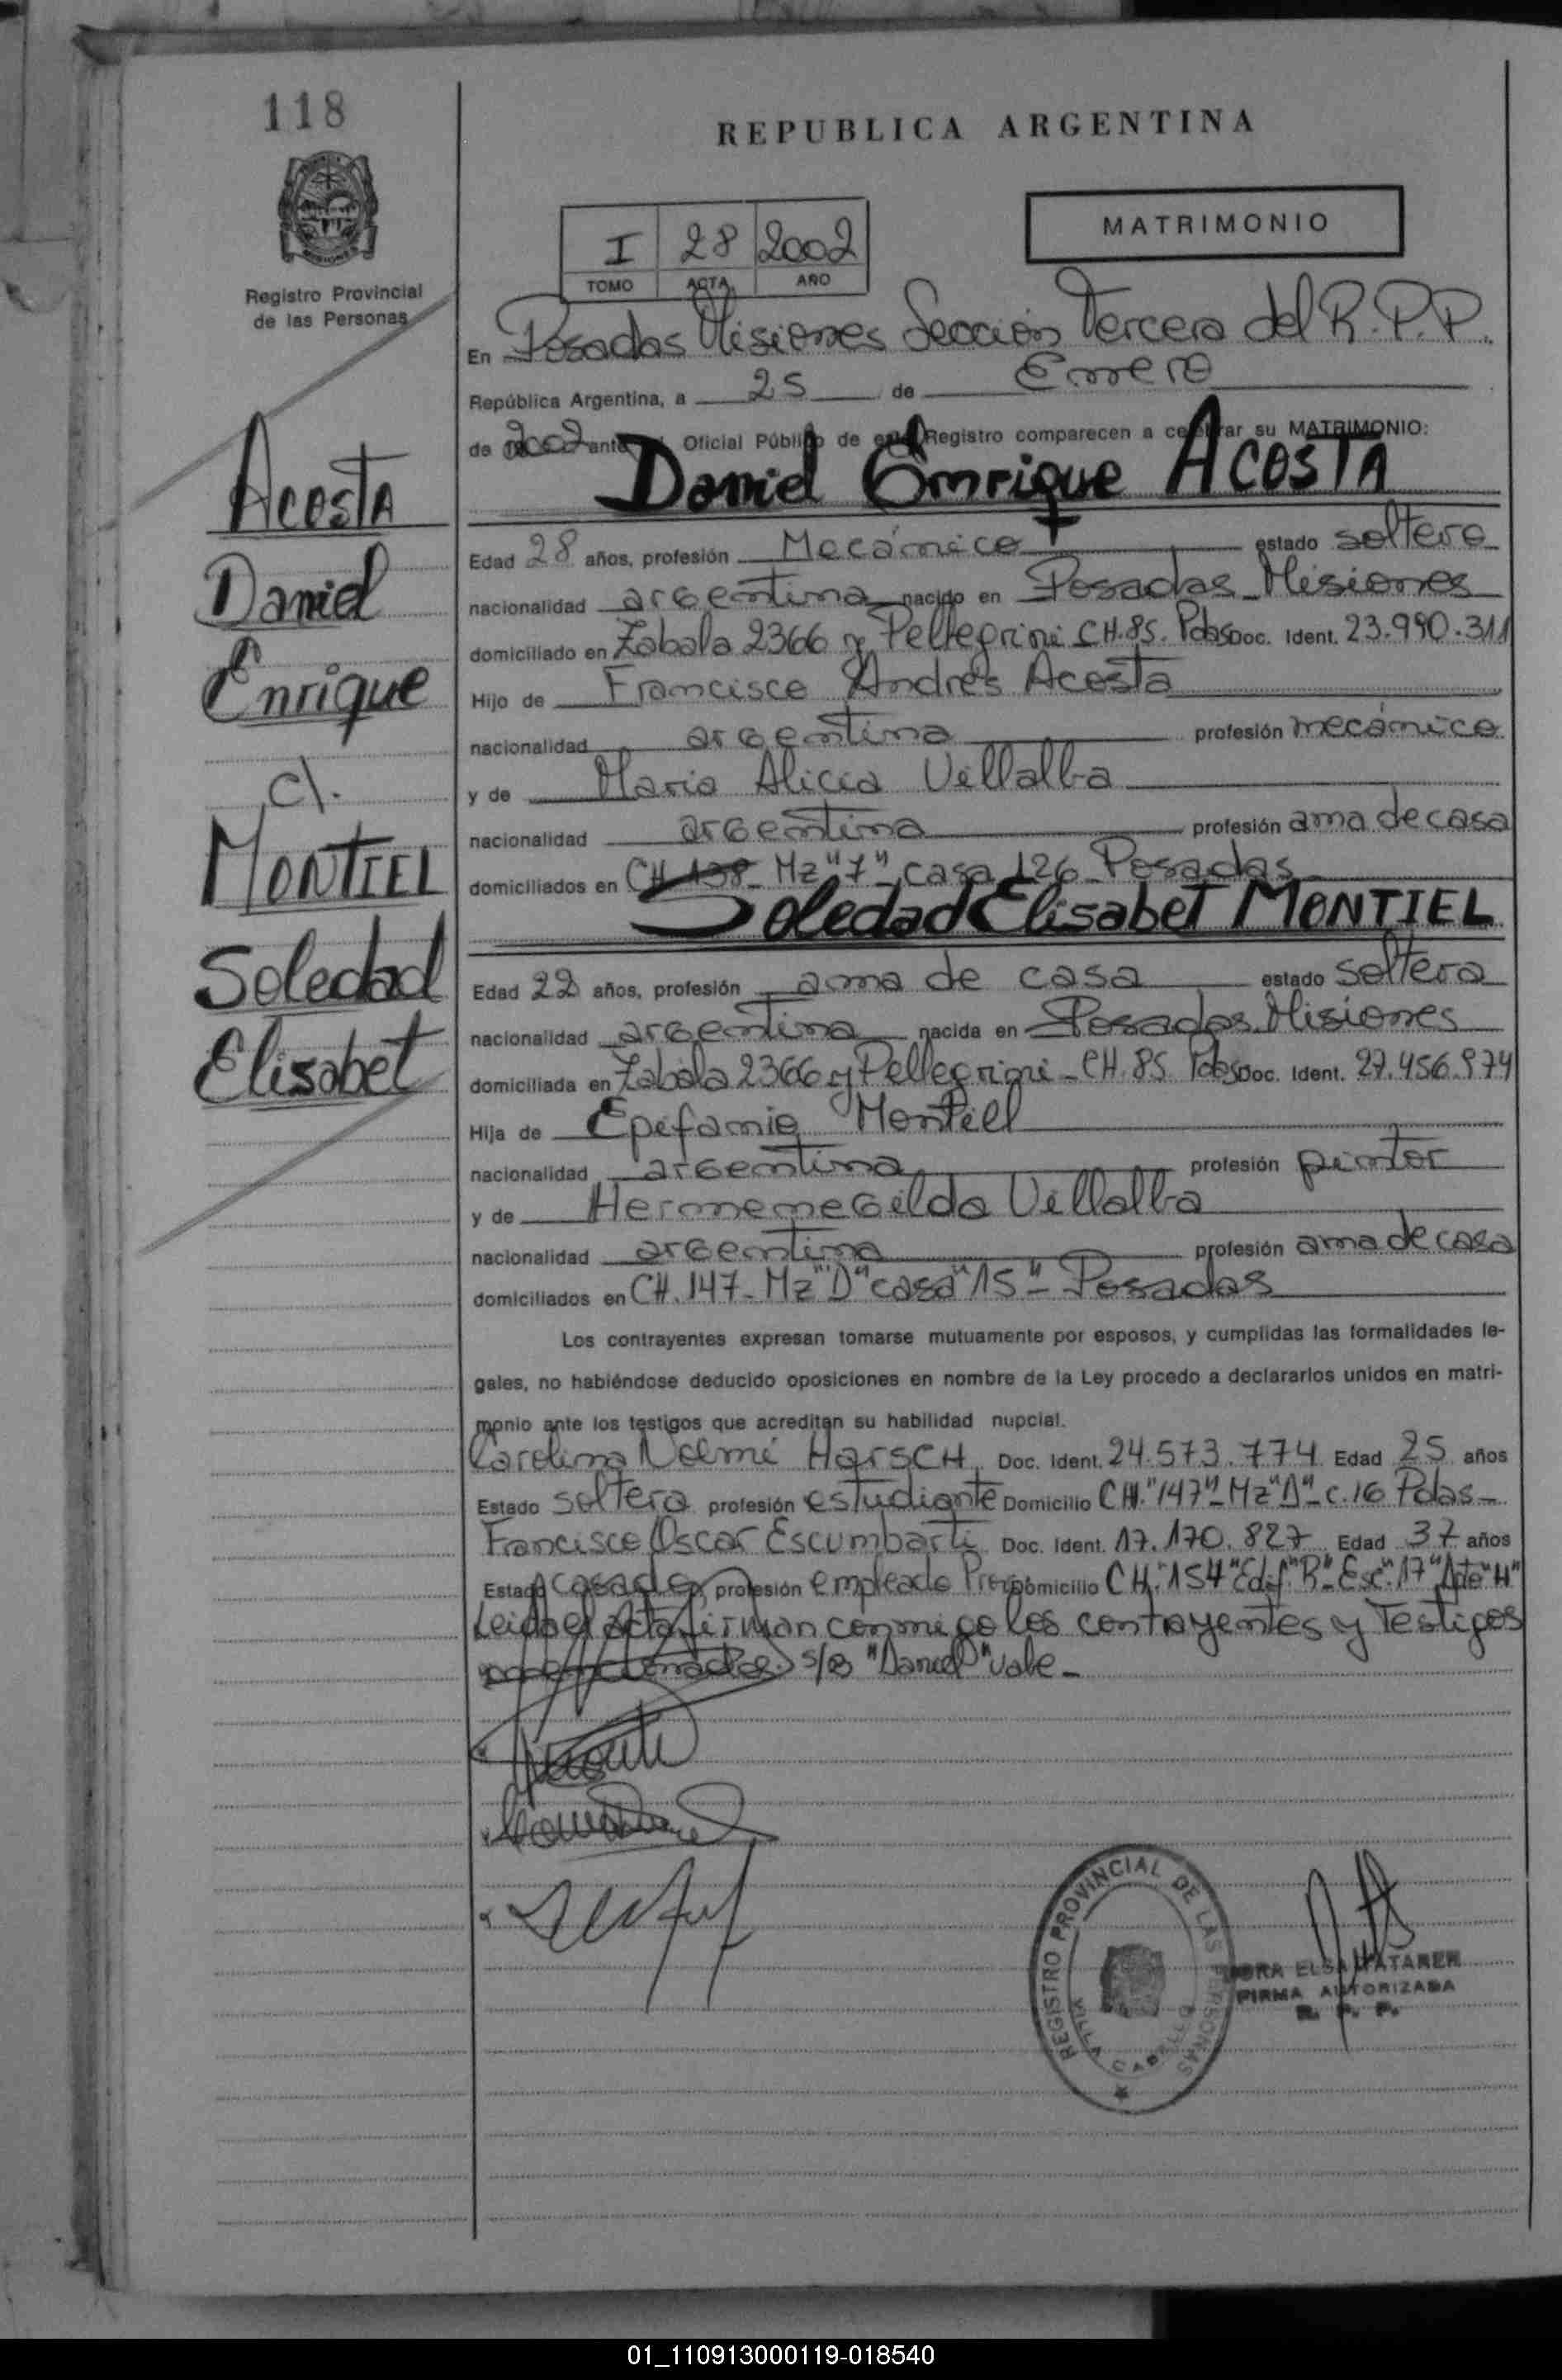 118
REPUBLICA ARGENTINA
MATRIMONIO
I 28 2002
TOMO ACTA AÑO
Registro Provincial
de las Personas
En Posadas Misiones Sección Tercera del R.P.P.
República Argentina, a 25 de Enero
de 2002 ante Oficial Público de este Registro comparecen a celebrar su MATRIMONIO:
Daniel Enrique ACOSTA
Edad 28 años, profesión Mecánico estado soltero
nacionalidad argentina nacido en Posadas Misiones
domiciliado en Zabala 2366 y Pellegrini CH.85. Pdas Doc. Ident. 23.990.311
Hijo de Francisco Andrés Acosta
nacionalidad argentina profesión mecánico
y de Maria Alicia Villalba
nacionalidad argentina profesión ama de casa
domiciliados en CH 138 Mz "7" casa 126 Posadas
Soledad Elisabet MONTIEL
Edad 22 años, profesión ama de casa estado soltera
nacionalidad argentina nacida en Posadas Misiones
domiciliada en Zabala 2366 y Pellegrini - CH.85 Pdas Doc. Ident. 27.456.974
Hija de Epifanio Montiel
nacionalidad argentina profesión pintor
y de Hermenegilda Villalba
nacionalidad argentina profesión ama de casa
domiciliados en CH.147- Mz "D" casa "15" - Posadas
Los contrayentes expresan tomarse mutuamente por esposos, y cumplidas las formalidades le-
gales, no habiéndose deducido oposiciones en nombre de la Ley procedo a declararlos unidos en matri-
monio ante los testigos que acreditan su habilidad nupcial.
Carolina Noemi HarscH Doc. Ident. 24.573.774 Edad 25 años
Estado soltera profesión estudiante Domicilio CH."147"- Mz "D"- c.16 Pdas -
Francisco Oscar Escumbarti Doc. Ident. 17.170.827 Edad 37 años
Estado casado, profesión empleado Domicilio CH."154" Edif "B" Esc. "17" "H"
Leida el acta firman conmigo los contrayentes y Testigos
s/b "Daniel" vale -
ACOSTA
Daniel
Enrique
c/.
MONTIEL
Soledad
Elisabet
REGISTRO PROVINCIAL DE LAS PERSONAS
VILLA CABELLO
ELSA
FIRMA AUTORIZADA
R. P. P.
01_110913000119-018540